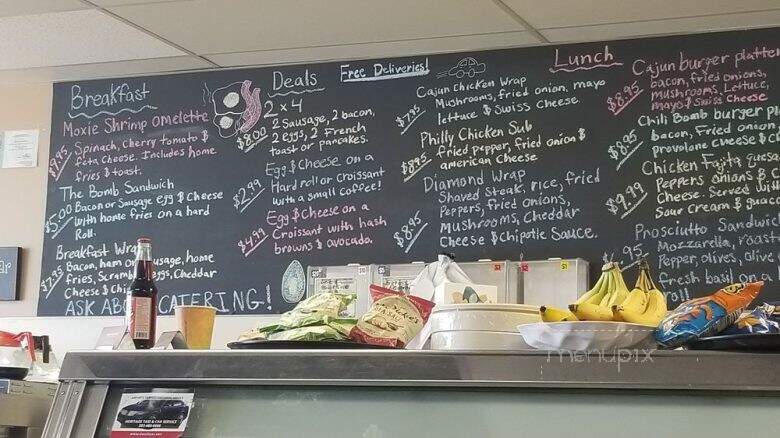 Breakfast
Moxie Shrimp omelette
$9.95 Spinach, Cherry tomato &
feta Cheese. Includes home
fries & toast.
The Bomb Sandwich
$5.00 Bacon or Sausage egg & Cheese
with home fries on a hard
Roll.
Breakfast Wrap
$7.95 Bacon, ham or sausage, home
fries, Scram eggs, Cheddar
Cheese &
ASK ABO CATERING!
Deals
2 x 4
$8.00 2 Sausage, 2 bacon,
2 eggs, 2 French
toast or pancakes.
Egg & Cheese on a
$2.99 Hard roll or Croissant
with a small Coffee!
Egg & Cheese on a
$4.99 Croissant with hash
browns & avocado.
Free Deliveries!
Lunch
Cajun Chicken Wrap
$7.95 Mushrooms, fried onion, mayo
lettuce & Swiss Cheese
Philly Chicken Sub
$8.95 fried pepper, fried onion &
american Cheese
Diamond Wrap
$8.95 Shaved Steak, rice, fried
Peppers, fried onions,
Mushrooms, Cheddar
Cheese & Chipotle Sauce.
Cajun burger platter
$8.95 bacon, fried onions,
mushrooms, Lettuce,
mayo & Swiss Cheese
Chili Bomb burger
$8.95 bacon, Fried onion
provolone Cheese &
Chicken Fajita
$9.99 Peppers onions &
Cheese. Served with
Sour Cream &
Prosciutto Sandwich
.95 Mozzarella, roast
Pepper, olives,
fresh basil on a
roll
menupix